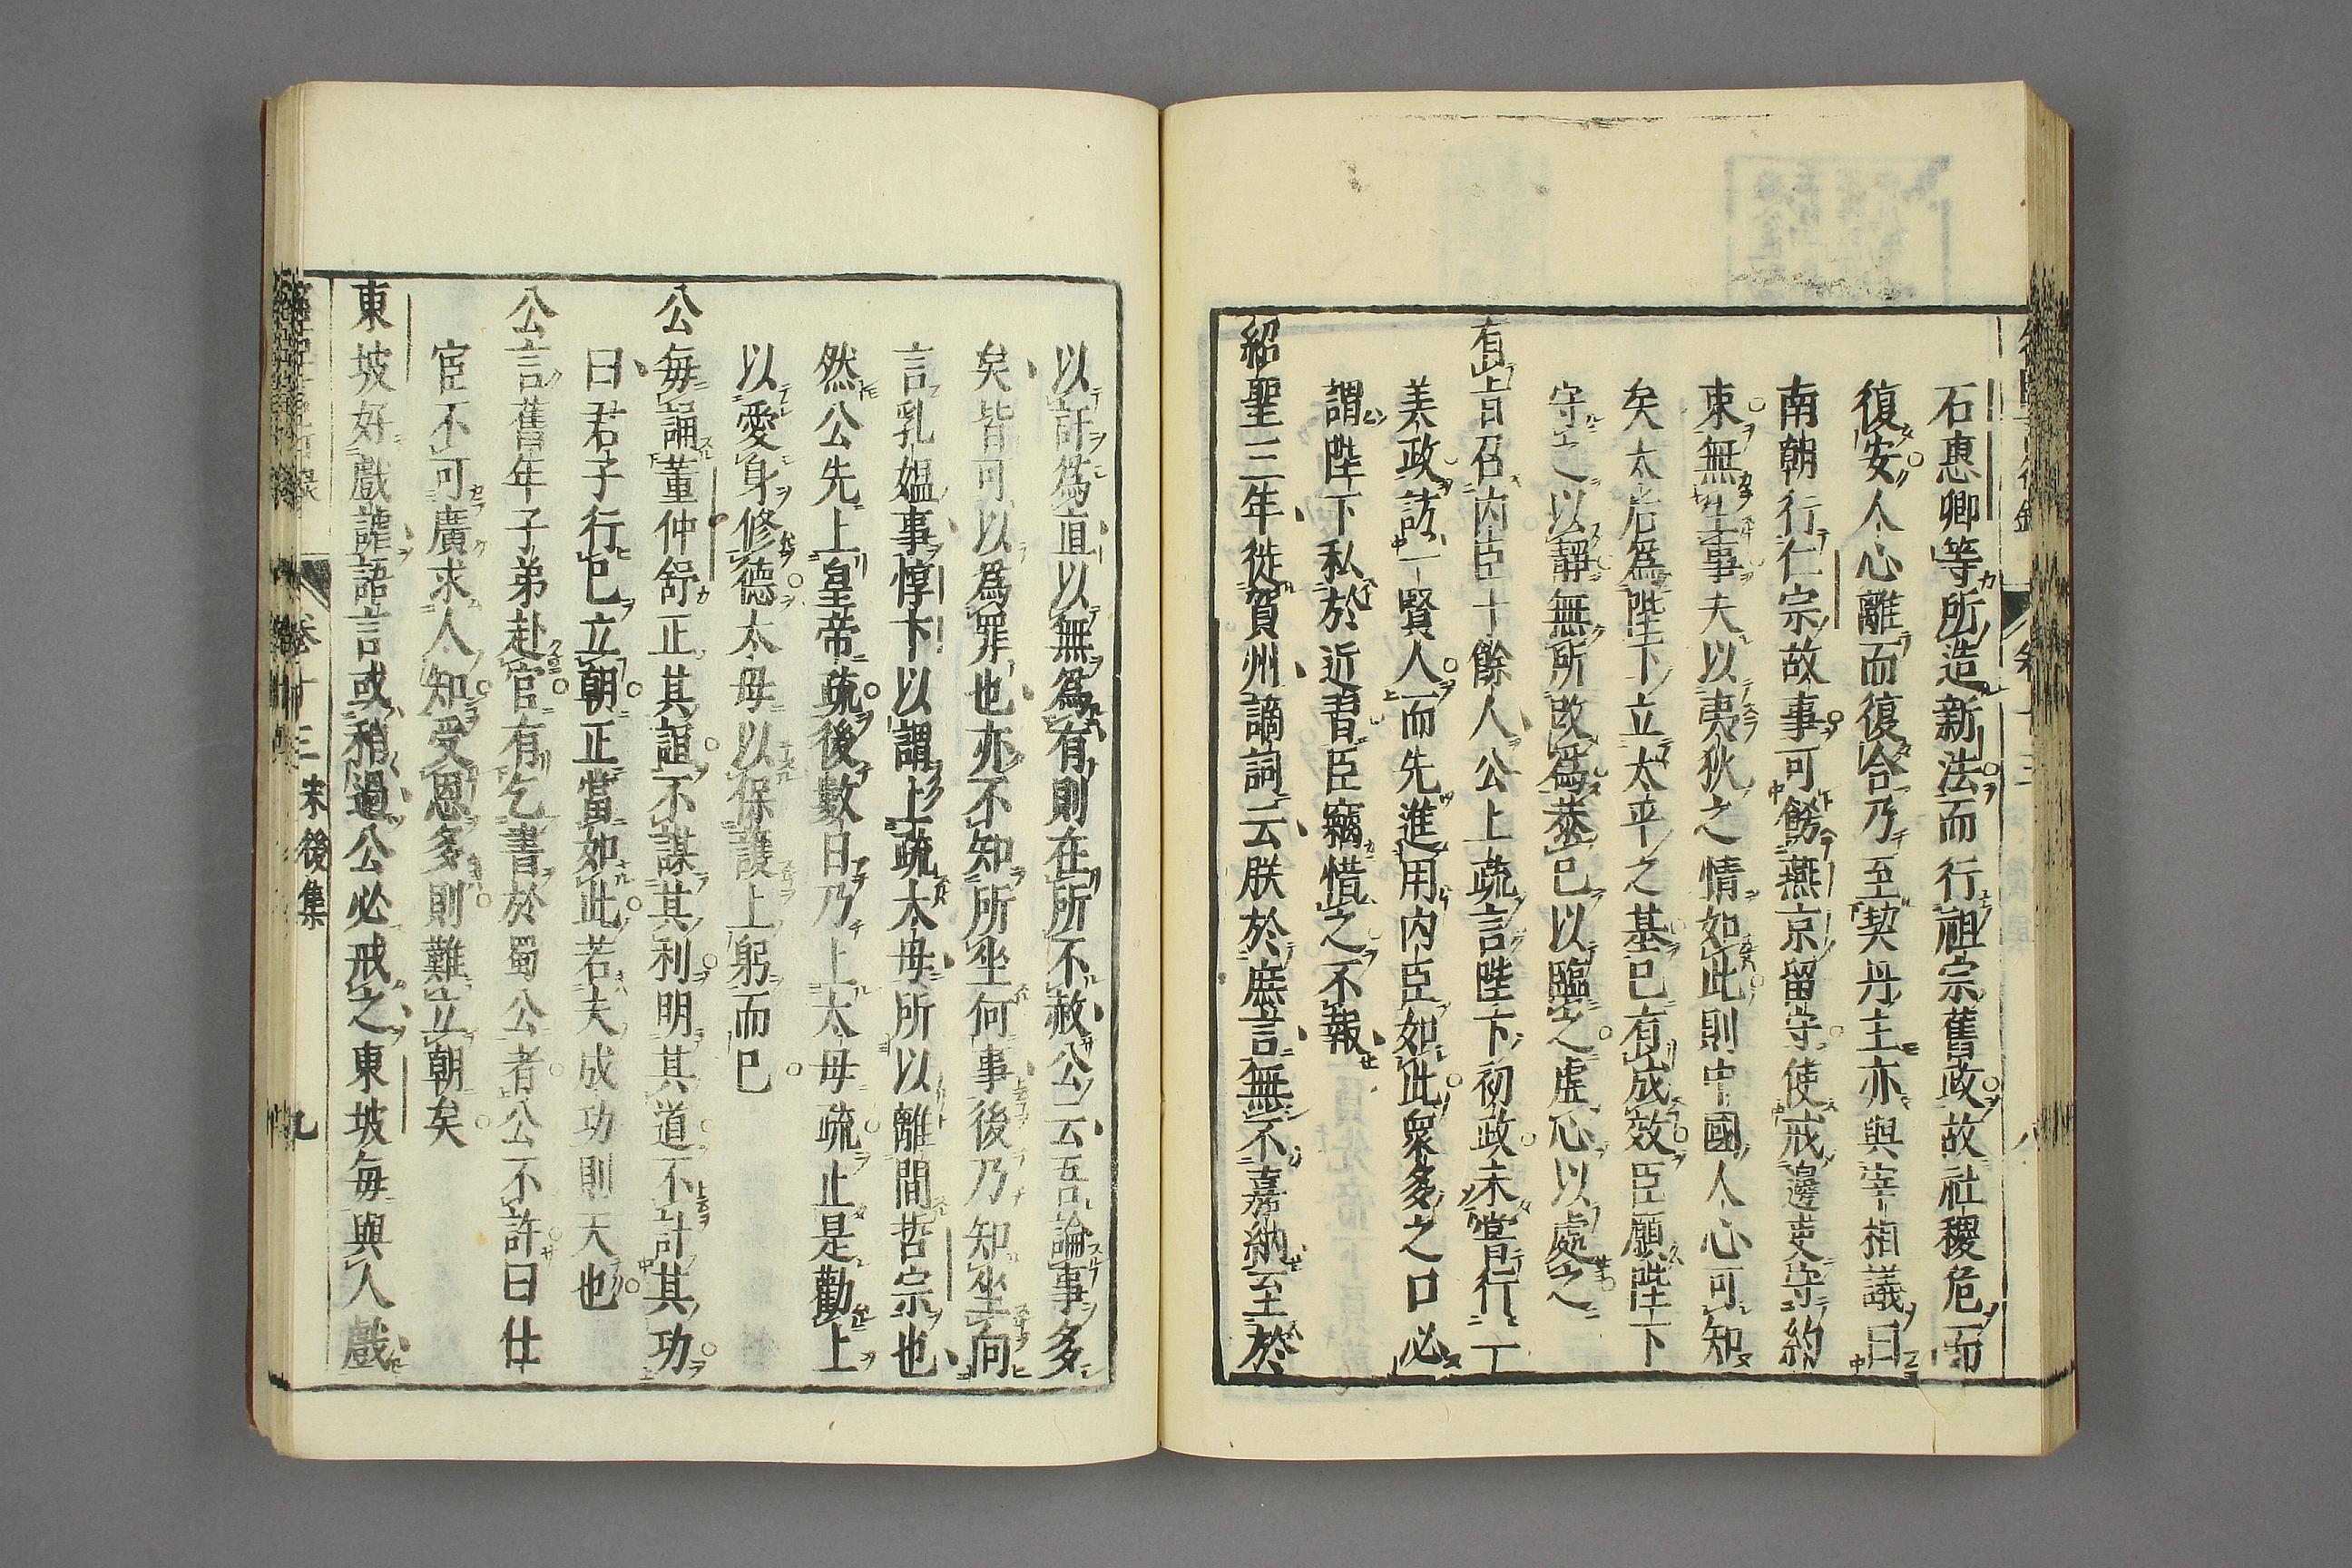 石惠卿等所造新法而行祖宗舊政故社稷危而
復安人心離而復合乃至契丹主亦與宰相議曰
南朝行仁宗故事可餝燕京留守使戒邊吏守約
束無生事夫以夷狄之情如此則中國人心可知
矣太后爲陛下立太平之基已有成效臣願陛下
守之以靜無所改爲恭已以臨之虛心以處之
有旨召内臣十餘人公上疏言陛下初政未嘗行一
美政訪一賢人而先進用内臣如此衆多之口必
謂陛下私於近習臣竊惜之不報
紹聖三年徙賀州謫詞云朕於庶言無不嘉納至於
以訐爲直以無爲有則在所不赦公云吾論事多
矣皆可以爲罪也亦不知所坐何事後乃知坐向
言乳媪事惇卞以謂上疏太母所以離間哲宗也
然公先上皇帝疏後數日乃上太母疏止是勸上
以愛身修德太母以保護上躬而已
公每誦董仲舒正其誼不謀其利明其道不計其功
曰君子行已立朝正當如此若夫成功則天也
公言舊年子弟赴官有乞書於蜀公者公不許曰仕
宦不可廣求人知受恩多則難立朝矣
東坡好戲謔語言或稍過公必戒之東坡每與人戲
卷十三 末後集
九